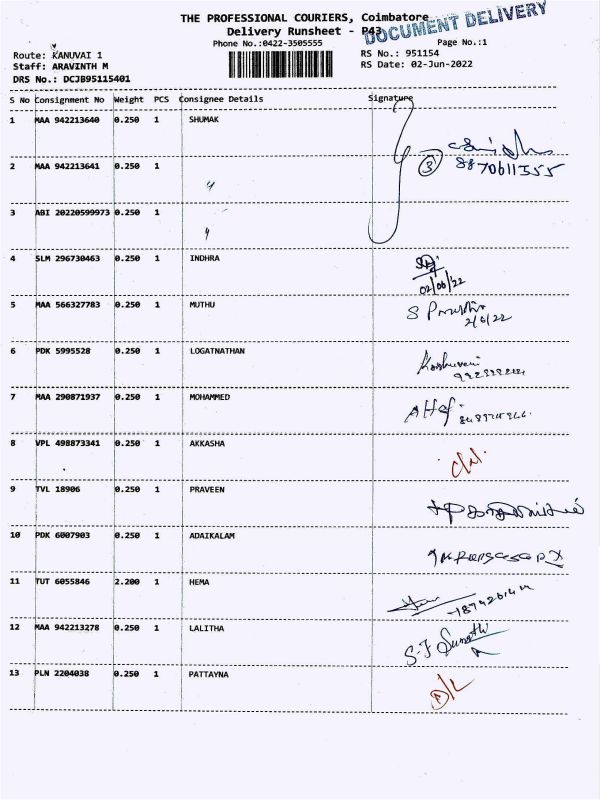 THE PROFESSIONAL COURIERS, Coimbatore
DOCUMENT DELIVERY
Delivery Runsheet - P43
Phone No.:0422-3505555
Page No.:1
Route: KANUVAI 1
RS No.: 951154
Staff: ARAVINTH M
RS Date: 02-Jun-2022
DRS No.: DCJB95115401
S No Consignment No Weight PCS Consignee Details Signature
1 MAA 942213640 0.250 1 SHUMAK
2 MAA 942213641 0.250 1 " 3 8870611355
3 ABI 20220599973 0.250 1 "
4 SLM 296730463 0.250 1 INDHRA
02/06/22
5 MAA 566327783 0.250 1 MUTHU
2/6/22
6 PDK 5995528 0.250 1 LOGATNATHAN
7 MAA 290871937 0.250 1 MOHAMMED
8 VPL 498873341 0.250 1 AKKASHA
9 TVL 18906 0.250 1 PRAVEEN
10 PDK 6007903 0.250 1 ADAIKALAM
11 TUT 6055846 2.200 1 HEMA
12 MAA 942213278 0.250 1 LALITHA
13 PLN 2204038 0.250 1 PATTAYNA